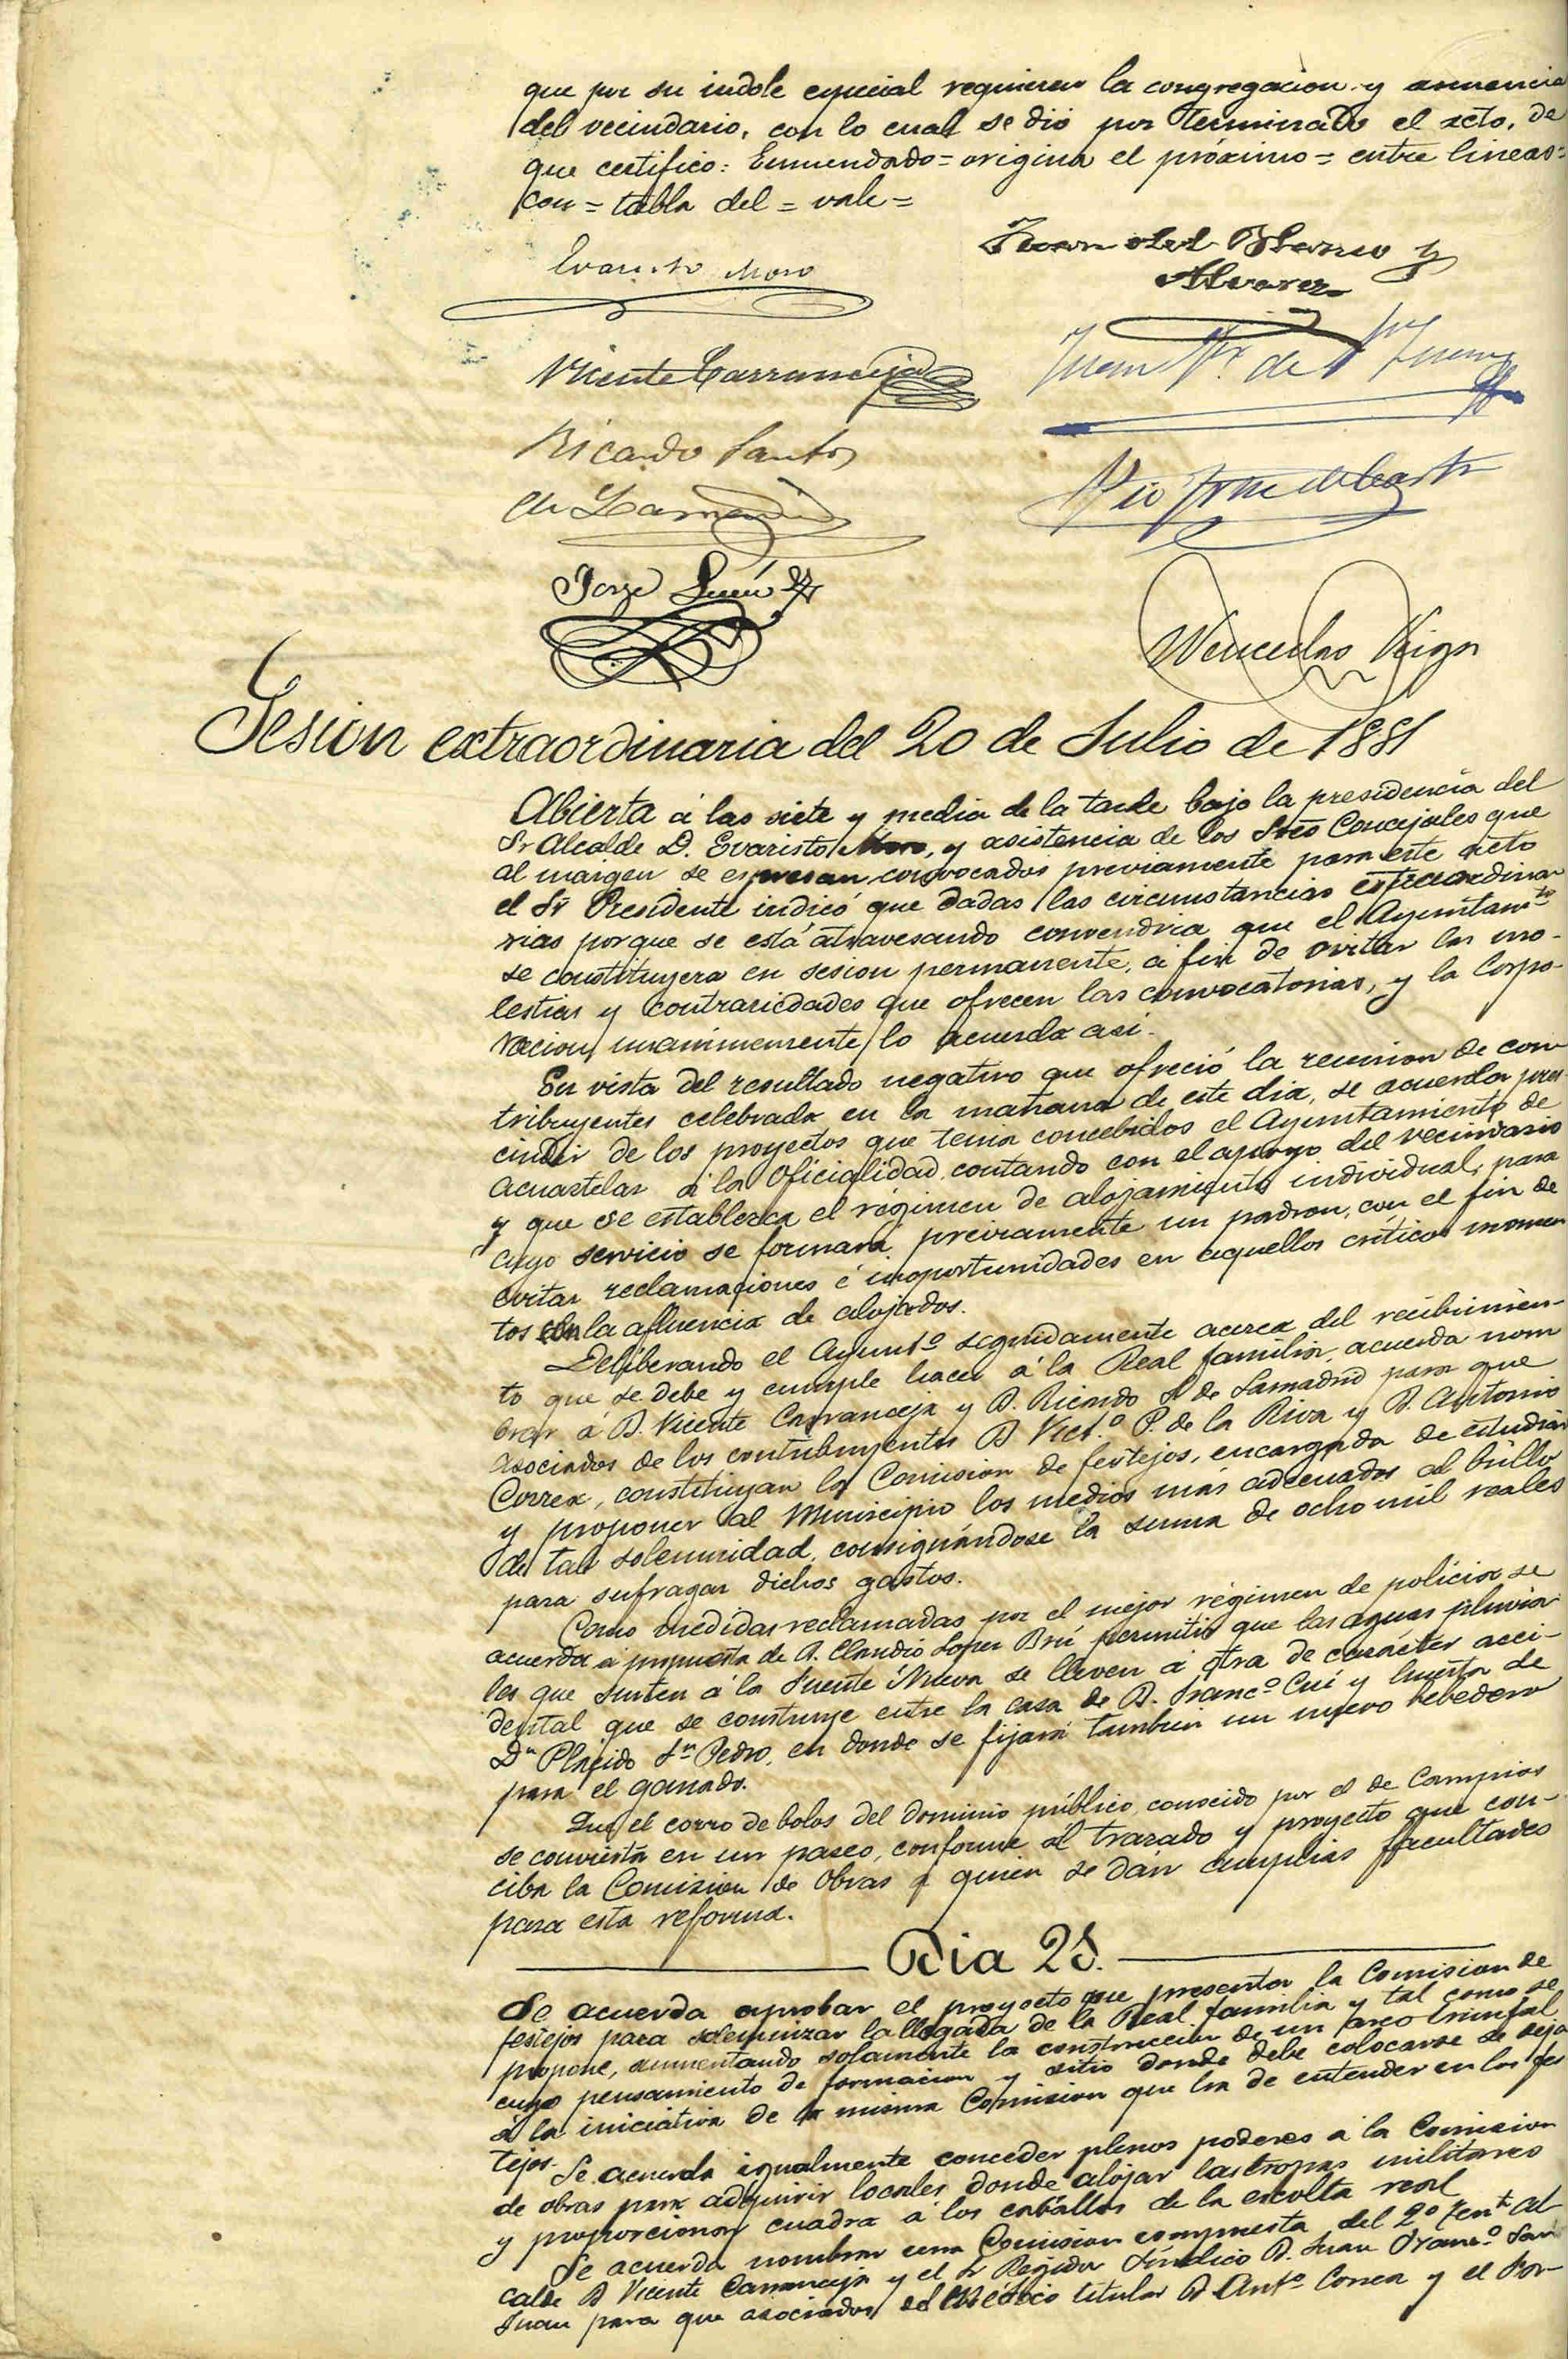 que por su indole especial requieren la congregacion y anuencia
del vecindario, con lo cual se dió por terminado el acto, de
que certifico: Enmendado = origina el próximo = entre lineas =
con = tabla del = vale =
Evaristo Moro
Juan del Blanco y
Alvarez
Vicente Carranceja
Juan de
Ricardo Santos
de Lamadrid
Jorge
Wenceslao Veiga
Sesion extraordinaria del 20 de Julio de 1881
Abierta á las siete y media de la tarde bajo la presidencia del
Sr Alcalde D. Evaristo Moro, y asistencia de los Sres Concejales que
al margen se espresan convocados previamente para este acto
el Sr Presidente indicó que dadas las circunstancias estraordina-
rias porque se está atravesando convendria que el Ayuntamto
se constituyera en sesion permanente, á fin de evitar las mo-
lestias y contrariedades que ofrecen las convocatorias, y la Corpo-
racion unanimemente lo acuerda asi.
En vista del resultado negativo que ofreció la reunion de con-
tribuyentes celebrada en la mañana de este dia, se acuerda pres-
cindir de los proyectos que tenia concebidos el Ayuntamiento de
acuartelar á la Oficialidad contando con el apoyo del vecindario
y que se establezca el régimen de alojamiento individual, para
cuyo servicio se formará previamente un padron, con el fin de
evitar reclamaciones é inoportunidades en aquellos criticos momen
tos con la afluencia de alojados.
Deliberando el Ayuntº seguidamente acerca del recibimien-
to que se debe y cumple hacer á la Real familia, acuerda nom
brar á D. Vicente Carranceja y D. Ricardo S. de Lamadrid para que
asociados de los contribuyentes D Vict.º P. de la Riva y D. Antonio
Correa, constituyan la Comision de festejos, encargada de estudiar
y proponer al Municipio los medios más adecuados al brillo
de tal solemnidad, consignándose la suma de ocho mil reales
para sufragar dichos gastos.
Como medidas reclamadas por el mejor régimen de policia se
acuerda á propuesta de D. Claudio Lopez Brú permitir que las aguas pluvia
les que surten á la Fuente Nueva se lleven á otra de carácter acci-
dental que se construye entre la casa de D. Francº Cuí y huerta de
Dn Plácido Sn Pedro, en donde se fijará tambien un nuevo bebedero
para el ganado.
Que el corro de bolos del dominio público, conocido por el de Campios
se convierta en un paseo, conforme al trazado y proyecto que con-
ciba la Comision de Obras á quien se dán amplias facultades
para esta reforma.
Dia 25.
Se acuerda aprobar el proyecto que presenta la Comision de
festejos para solemnizar la llegada de la Real familia y tal como se
propone, aumentando solamente la construccion de un arco triunfal
cuyo pensamiento de formacion y sitio donde debe colocarse se deja
á la iniciativa de la misma Comision que ha de entender en los fes
tejos.
Se acuerda igualmente conceder plenos poderes á la Comision
de obras para adquirir locales donde alojar las tropas militares
y proporcionar cuadra á los caballos de la escolta real
Se acuerda nombrar una Comision compuesta del 2º Tente Al-
calde D Vicente Carranceja y el Sr Regidor Síndico D. Juan Francº San
Juan para que asociados del Médico titular D Antº Correa y el For-